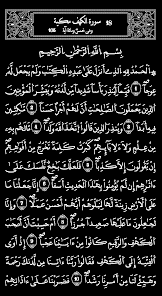 18 سورة الكهف مكية
بِسْمِ اللَّهِ الرَّحْمَٰنِ الرَّحِيمِ
الْحَمْدُ لِلَّهِ الَّذِي أَنزَلَ عَلَىٰ عَبْدِهِ الْكِتَابَ وَلَمْ يَجْعَل لَّهُ
عِوَجًا ۝١ قَيِّمًا لِّيُنذِرَ بَأْسًا شَدِيدًا مِّن لَّدُنْهُ وَيُبَشِّرَ الْمُؤْمِنِينَ
الَّذِينَ يَعْمَلُونَ الصَّالِحَاتِ أَنَّ لَهُمْ أَجْرًا حَسَنًا ۝٢ مَّاكِثِينَ فِيهِ
أَبَدًا ۝٣ وَيُنذِرَ الَّذِينَ قَالُوا اتَّخَذَ اللَّهُ وَلَدًا ۝٤ مَّا لَهُم بِهِ
مِنْ عِلْمٍ وَلَا لِآبَائِهِمْ كَبُرَتْ كَلِمَةً تَخْرُجُ مِنْ أَفْوَاهِهِمْ
إِن يَقُولُونَ إِلَّا كَذِبًا ۝٥ فَلَعَلَّكَ بَاخِعٌ نَّفْسَكَ عَلَىٰ
آثَارِهِمْ إِن لَّمْ يُؤْمِنُوا بِهَٰذَا الْحَدِيثِ أَسَفًا ۝٦ إِنَّا جَعَلْنَا مَا
عَلَى الْأَرْضِ زِينَةً لَّهَا لِنَبْلُوَهُمْ أَيُّهُمْ أَحْسَنُ عَمَلًا ۝٧ وَإِنَّا
لَجَاعِلُونَ مَا عَلَيْهَا صَعِيدًا جُرُزًا ۝٨ أَمْ حَسِبْتَ أَنَّ أَصْحَابَ
الْكَهْفِ وَالرَّقِيمِ كَانُوا مِنْ آيَاتِنَا عَجَبًا ۝٩ إِذْ أَوَى
الْفِتْيَةُ إِلَى الْكَهْفِ فَقَالُوا رَبَّنَا آتِنَا مِن لَّدُنكَ رَحْمَةً
وَهَيِّئْ لَنَا مِنْ أَمْرِنَا رَشَدًا ۝١٠ فَضَرَبْنَا عَلَىٰ آذَانِهِمْ